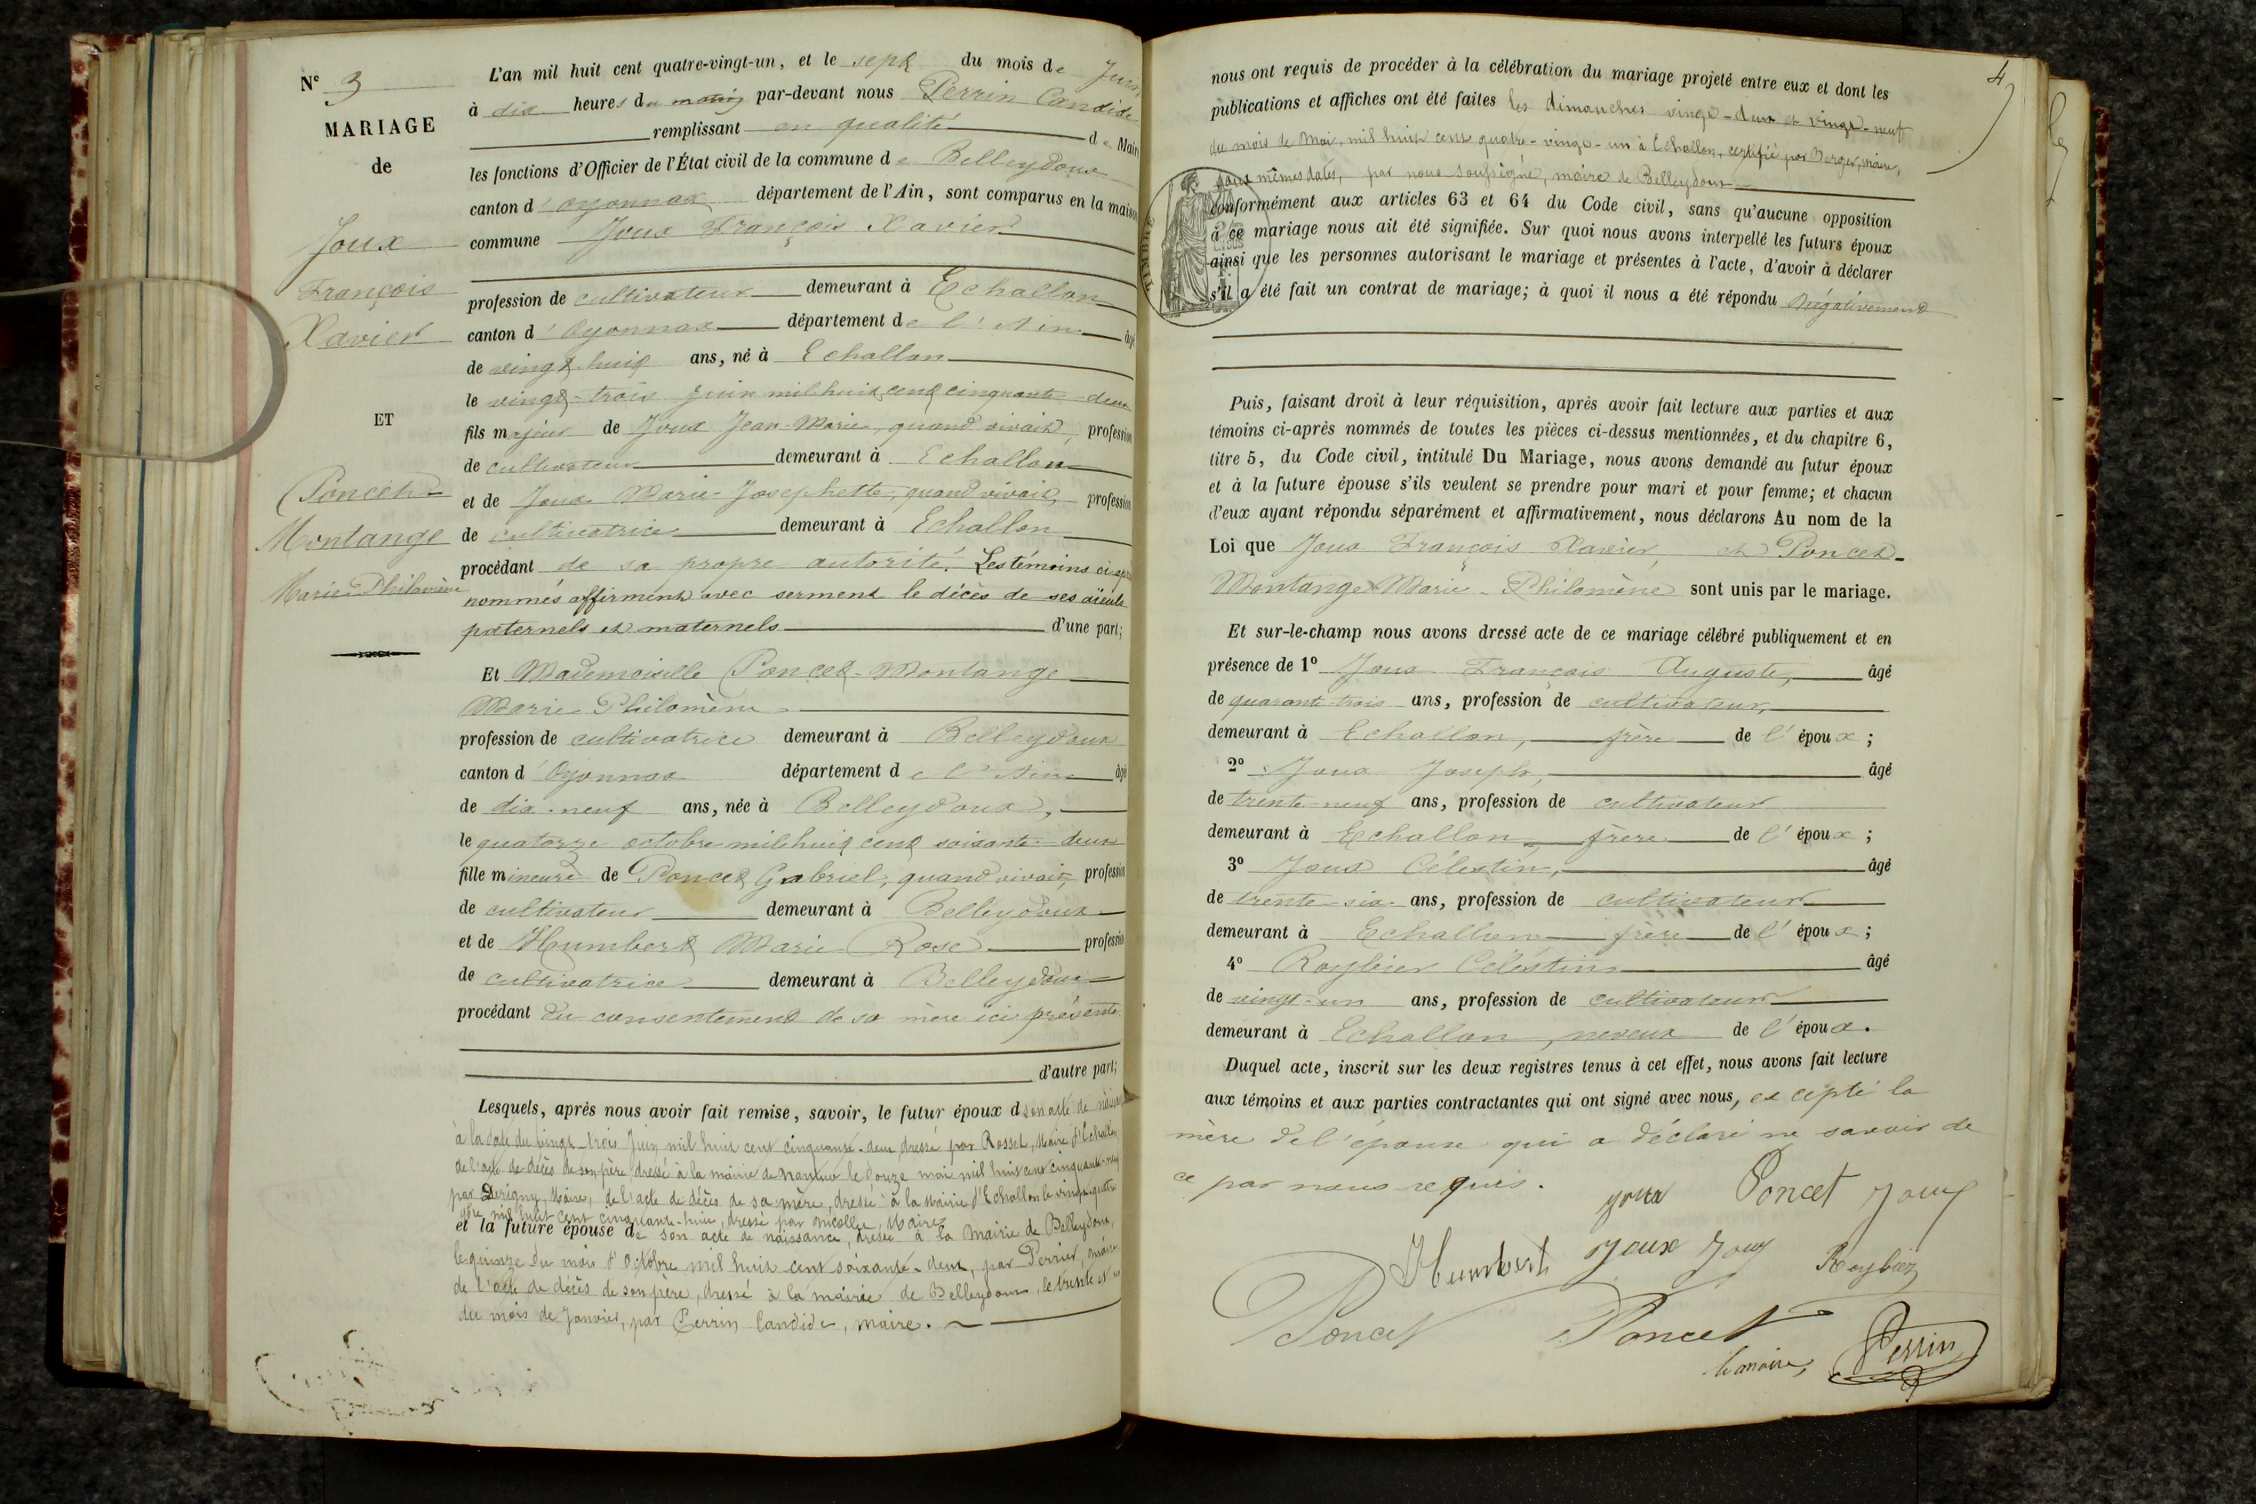 N° 3
MARIAGE
de
Joux
François
Xavier
ET
Poncet-
Montange
Marie-Philomène
L'an mil huit cent quatre-vingt-un, et le sept du mois de Juin,
à dix heures du matin par-devant nous Perrin Candide
remplissant en qualité de Maire
les fonctions d'Officier de l'État civil de la commune de Belleydoux
canton d'oyonnax département de l'Ain, sont comparus en la maison
commune Joux François Xavier
profession de cultivateur demeurant à Echallon
canton d'Oyonnax département de l'Ain âgé
de vingt-huit ans, né à Echallon
le vingt-trois juin mil huit cent cinquante-deux
fils majeur de Joux Jean-Marie, quand vivait, profession
de cultivateur demeurant à Echallon
et de Joux Marie-Josephette, quand vivait, profession
de cultivatrice demeurant à Echallon
procédant de sa propre autorité. Les témoins ci-après
nommés affirment avec serment le décès de ses aïeuls
paternels et maternels d'une part;
Et Mademoiselle Poncet-Montange
Marie-Philomène
profession de cultivatrice demeurant à Belleydoux
canton d'Oyonnax département de l'Ain âgé
de dix-neuf ans, née à Belleydoux,
le quatorze octobre mil huit cent soixante-deux
fille mineure de Poncet Gabriel, quand vivait, profession
de cultivateur demeurant à Belleydoux
et de Humbert Marie Rose profession
de cultivatrice demeurant à Belleydoux
procédant du consentement de sa mère ici présente
d'autre part;
Lesquels, après nous avoir fait remise, savoir, le futur époux d son acte de naissance
à la date du vingt-trois Juin mil huit cent cinquante-deux dressé par Rosset, Maire d'Echallon
de l'acte de décès de son père dressé à la mairie de Nantua le douze mai mil huit cent cinquante-neuf
par Derigny, Maire, de l'acte de décès de sa mère, dressé à la Mairie d'Echallon le vingt-quatre
mil huit cent cinquante-huit, dressé par Nicollet, Maire
et la future épouse de son acte de naissance, dressé à la Mairie de Belleydoux,
le quinze du mois d'Octobre mil huit cent soixante-deux, par Perrier, maire
de l'acte de décès de son père, dressé à la mairie de Belleydoux, le trente et un
du mois de Janvier, par Perrin Candide, maire.
4
nous ont requis de procéder à la célébration du mariage projeté entre eux et dont les
publications et affiches ont été faites les dimanches vingt-deux et vingt-neuf
du mois de Mai, mil huit cent quatre-vingt-un à Echallon, certifié par Berger, maire,
aux mêmes dates, par nous soussigné, maire de Belleydoux
conformément aux articles 63 et 64 du Code civil, sans qu'aucune opposition
à ce mariage nous ait été signifiée. Sur quoi nous avons interpellé les futurs époux
ainsi que les personnes autorisant le mariage et présentes à l'acte, d'avoir à déclarer
s'il a été fait un contrat de mariage; à quoi il nous a été répondu Négativement
Puis, faisant droit à leur réquisition, après avoir fait lecture aux parties et aux
témoins ci-après nommés de toutes les pièces ci-dessus mentionnées, et du chapitre 6,
titre 5, du Code civil, intitulé Du Mariage, nous avons demandé au futur époux
et à la future épouse s'ils veulent se prendre pour mari et pour femme; et chacun
d'eux ayant répondu séparément et affirmativement, nous déclarons Au nom de la
Loi que Joux François Xavier, et Poncet-
Montange Marie-Philomène sont unis par le mariage.
Et sur-le-champ nous avons dressé acte de ce mariage célébré publiquement et en
présence de 1° Joux François Auguste, âgé
de quarante-trois ans, profession de cultivateur,
demeurant à Echallon, frère de l'époux;
2° Joux Joseph, âgé
de trente-neuf ans, profession de cultivateur
demeurant à Echallon, frère de l'époux;
3° Joux Célestin, âgé
de trente-six ans, profession de cultivateur
demeurant à Echallon frère de l'époux;
4° Roybier Célestin âgé
de vingt-un ans, profession de cultivateur
demeurant à Echallon, neveux de l'époux.
Duquel acte, inscrit sur les deux registres tenus à cet effet, nous avons fait lecture
aux témoins et aux parties contractantes qui ont signé avec nous, excepté la
mère de l'épouse qui a déclaré ne savoir de
ce par nous requis.
Joux Poncet Joux
Humbert Joux Joux Roybier
Poncet Poncet
le maire, Perrin